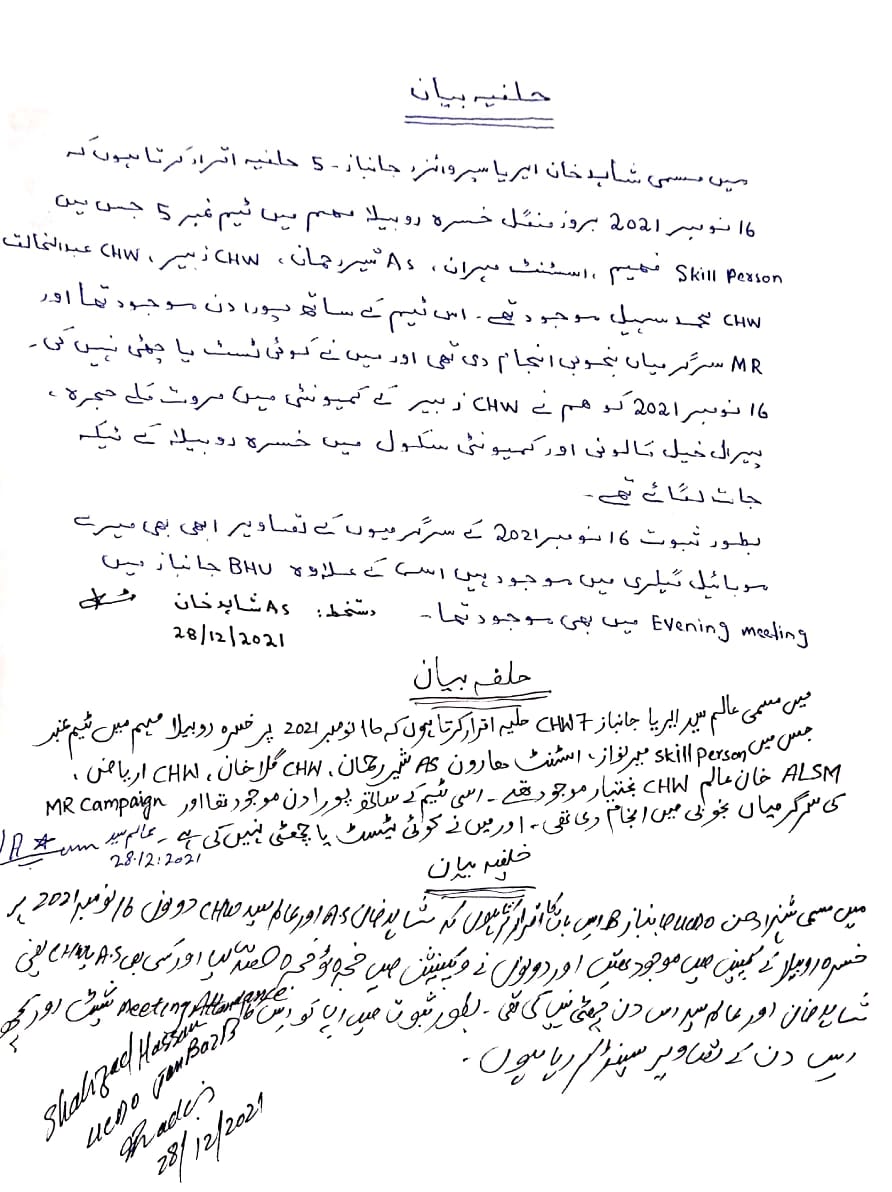 حلفیہ بیان
میں مسمی شاہد خان ایریا سپروائزر جانباز - 5 حلفیہ اقرار کرتا ہوں کہ
16 نومبر 2021 بروز منگل خسرہ روبیلا مہم میں ٹیم نمبر 5 جس میں
Skill Person فہیم ، اسٹنٹ مہران ، As شیر رحمان ، CHW زبیر ، CHW عبدالخالق
CHW محمد سہیل موجود تھے ۔ اس ٹیم کے ساتھ پورا دن موجود تھا اور
MR سرگرمیاں بخوبی انجام دی تھی اور میں نے کوئی ٹسٹ یا چھٹی نہیں کی ۔
16 نومبر 2021 کو ہم نے CHW زبیر کے کمیونٹی میں مروت کلے حجرہ ،
پیرال خیل کالونی اور کمیونٹی سکول میں خسرہ روبیلا کے ٹیکہ
جات لگائے تھے ۔
بطور ثبوت 16 نومبر 2021 کے سرگرمیوں کے تصاویر ابھی بھی میرے
موبائل گیلری میں موجود ہیں اسکے علاوہ BHU جانباز میں
Evening meeting میں بھی موجود تھا ۔ دستخط : As شاہد خان
28/12/2021
حلفہ بیان
میں مسمی عالم سید ایریا جانباز CHW 7 حلیہ اقرار کرتا ہوں کہ 16 نومبر 2021 پر خسرہ روبیلا مہیم میں ٹیم نمبر
جس میں Skill Person میر نواز ، اسٹنٹ ہارون AS شیر رحمان ، CHW گلا خان ، CHW ریاض ،
ALSM خان عالم CHW بختیار موجود تھے ۔ اسی ٹیم کے ساتھ پورا دن موجود تھا اور MR Campaign
کی سرگرمیاں بخوبی میں انجام دی تھی ۔ اور میں نے کوئی ٹیسٹ یا چھٹی نہیں کی ہے ۔ عالم سید
28.12.2021
حلفیہ بیان
میں مسمی شہزاد حسن UCDO جانباز B اس بات کا اقرار کرتا ہوں کہ شاہد خان A.S اور عالم سید CHW دونوں 16 نومبر 2021 پر
خسرہ روبیلا کے کمپین میں موجود تھیں اور دونوں نے ویکسینیشن میں حصہ لیا اور کسی بھی A.S یا CHW یعنی
شاہد خان اور عالم سید اس دن چھٹی نہیں کی تھی ۔ بطور ثبوت میں آپ کو اس Meeting Attendance شیٹ اور
اس دن کے تصاویر سینڈ کر رہا ہوں ۔
Shahzad Hassan
UCDO JanBaz B
28/12/2021